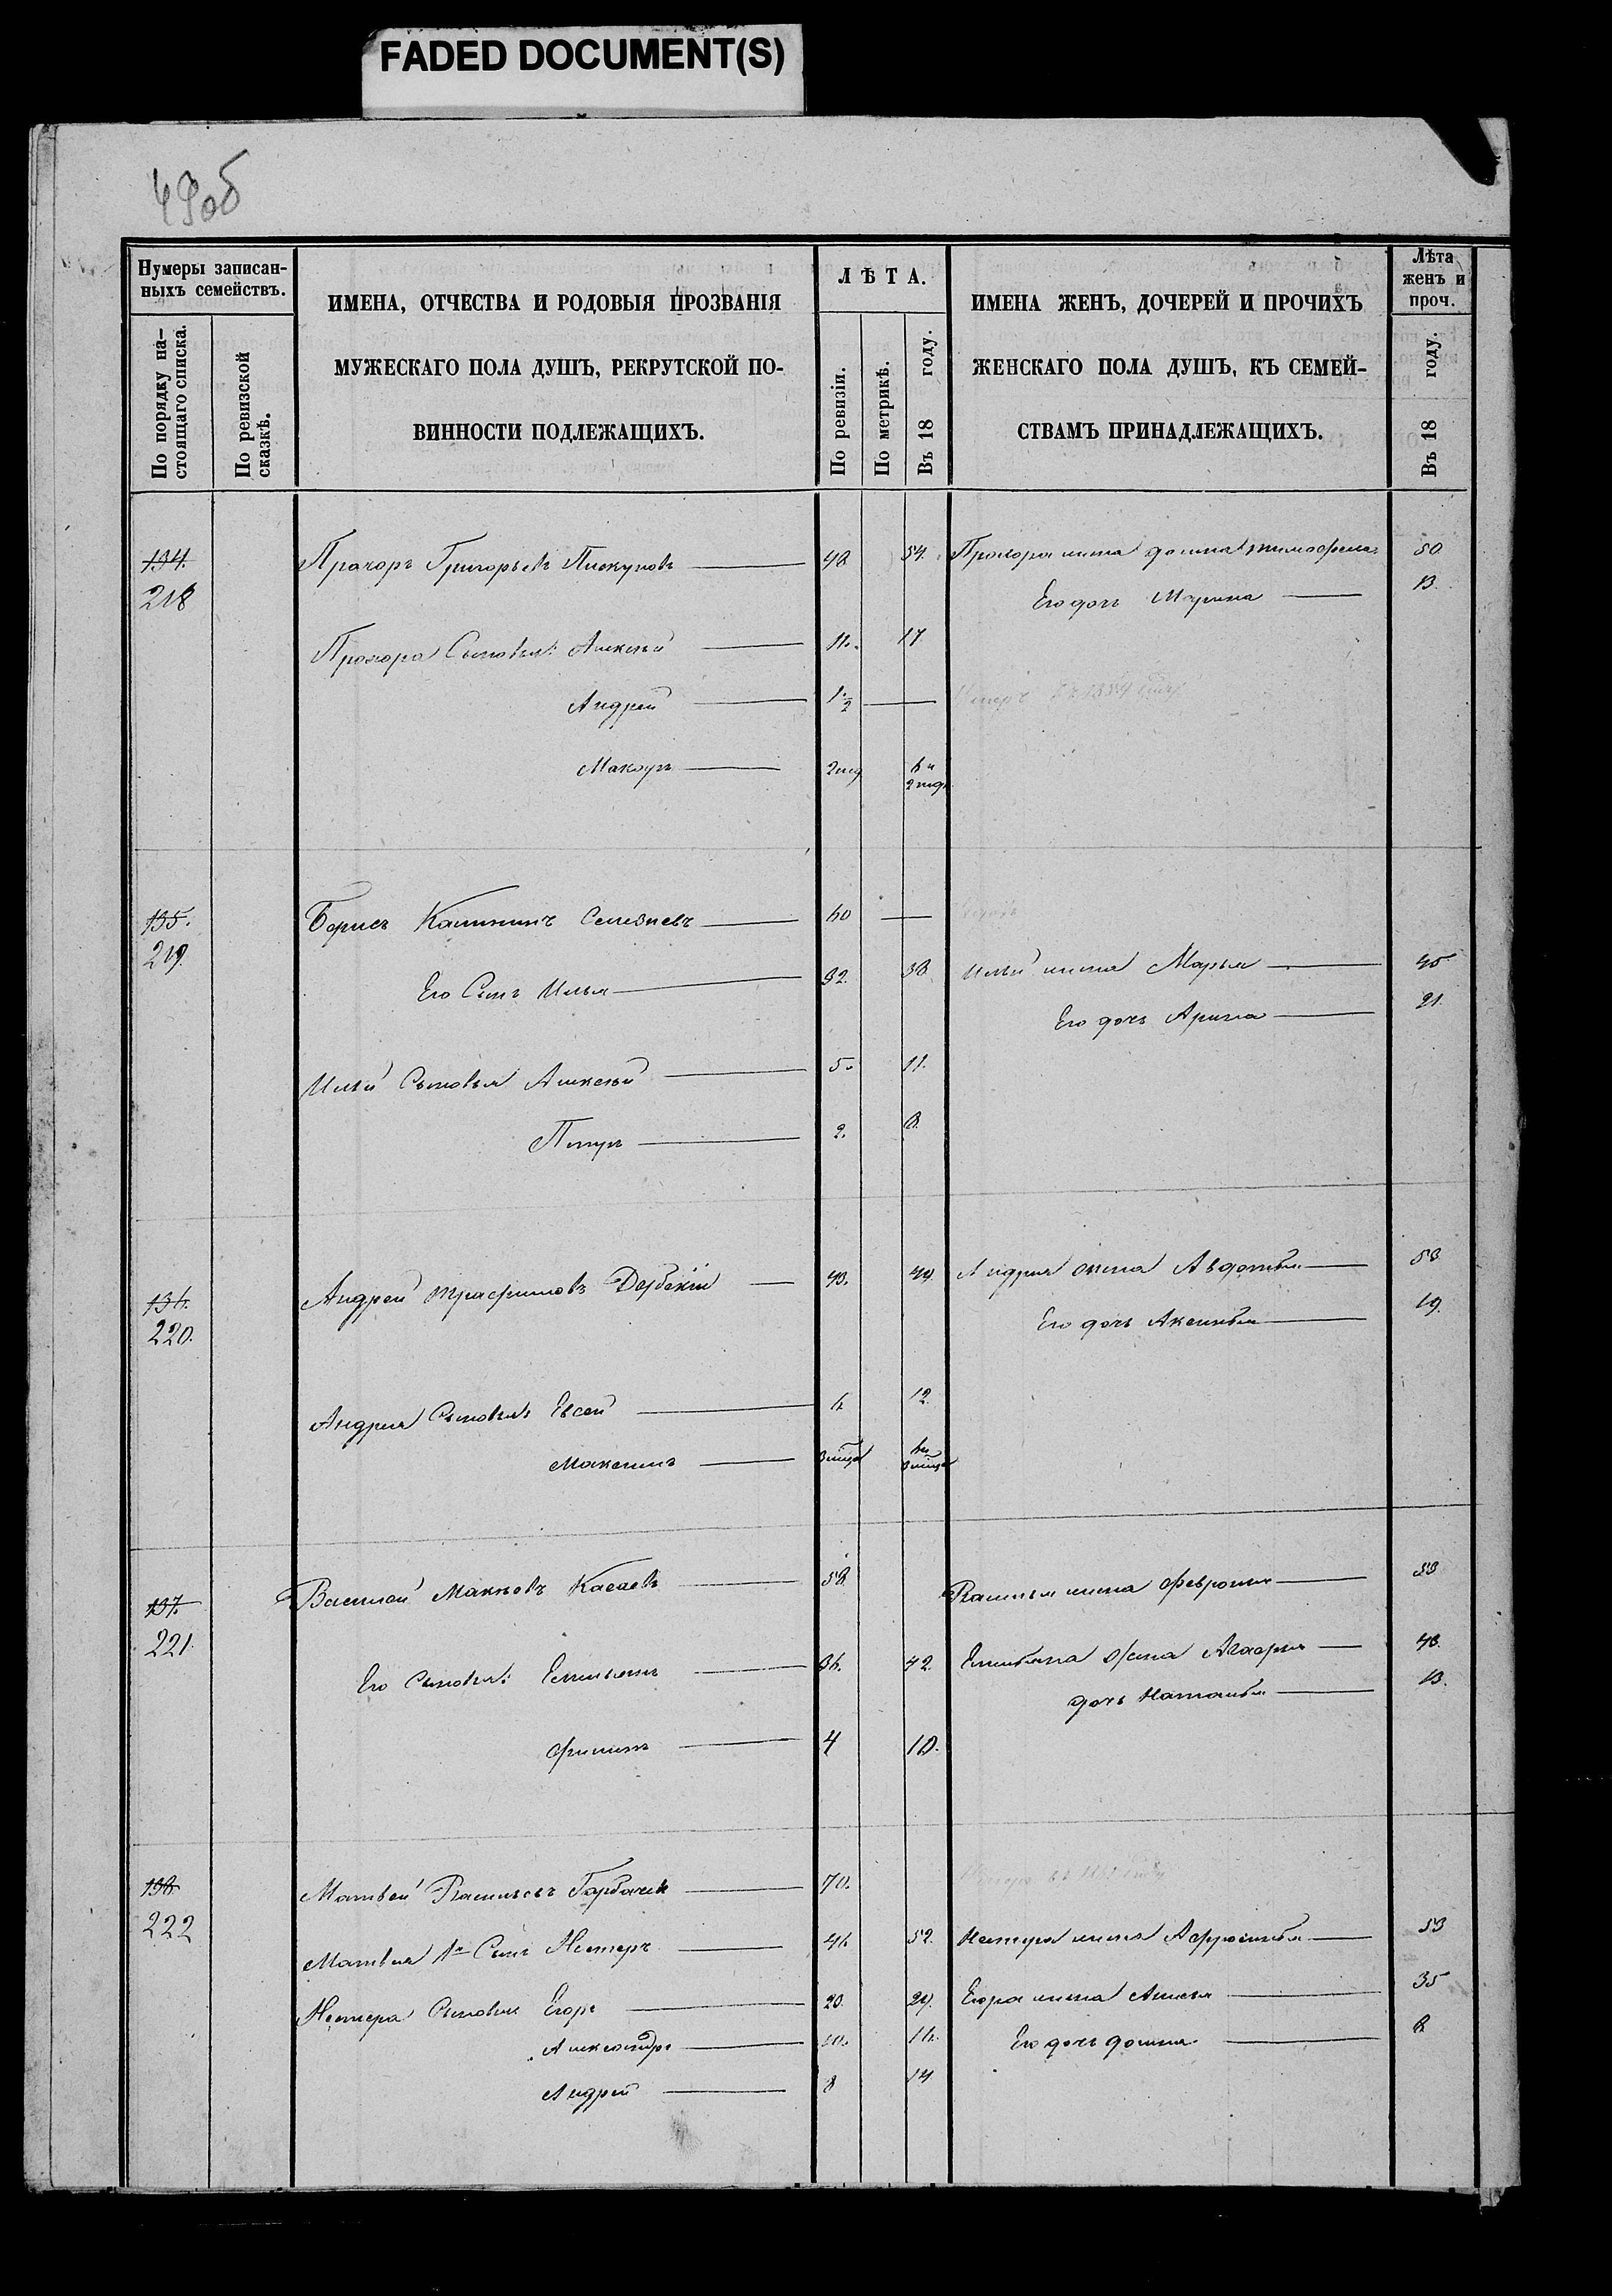 FADED DOCUMENT(S)
49об
Нумеры записан-
ныхъ семействъ.
По порядку на-
стоящаго списка.
По ревизской
сказкѣ.
ИМЕНА, ОТЧЕСТВА И РОДОВЫЯ ПРОЗВАНІЯ
МУЖЕСКАГО ПОЛА ДУШЪ, РЕКРУТСКОЙ ПО-
ВИННОСТИ ПОДЛЕЖАЩИХЪ.
ЛѢТА.
По ревизіи.
По метрикѣ.
Въ 18 году.
ИМЕНА ЖЕНЪ, ДОЧЕРЕЙ И ПРОЧИХЪ
ЖЕНСКАГО ПОЛА ДУШЪ, КЪ СЕМЕЙ-
СТВАМЪ ПРИНАДЛЕЖАЩИХЪ.
Лѣта
женъ и
проч.
Въ 18 году.
134. Прохоръ Григорьевъ Пискуновъ 48 54. Прохора жена 50
218 Его дочь Марина 13.
Прохора Сыновья: Алексѣй 11. 17
Андрей 1 1/2
2 нед 6 и
2 нед.
135. Борисъ Калининъ Селезневъ 60
219. Его Сынъ Илья 32. 38 Ильи жена Марья 45
Его дочь Арина 21.
Ильи Сыновья Алексѣй 5. 11.
Петръ 2. 8.
136. Андрей Трафимовъ 43. 49. Андрея жена Авдотья 53
220. Его дочь Аксинья 19.
Андрея Сыновья: Евсей 6 12.
Максимъ
137. Василій 58. Василья жена Февронья 53
221. Его Сыновья: Емельянъ 36. 42. Емельяна жена Агафья 43.
дочь Наталья 13.
Филипъ 4 10.
138. Матвей Васильевъ 70.
222 Матвея 1й Сынъ Нестеръ 46 52. Нестера жена Афросинья 53
Нестера Сыновья Егоръ 20. 29. Егора жена 35
Александръ 10. 16. Его дочь 8
Андрей 8 14